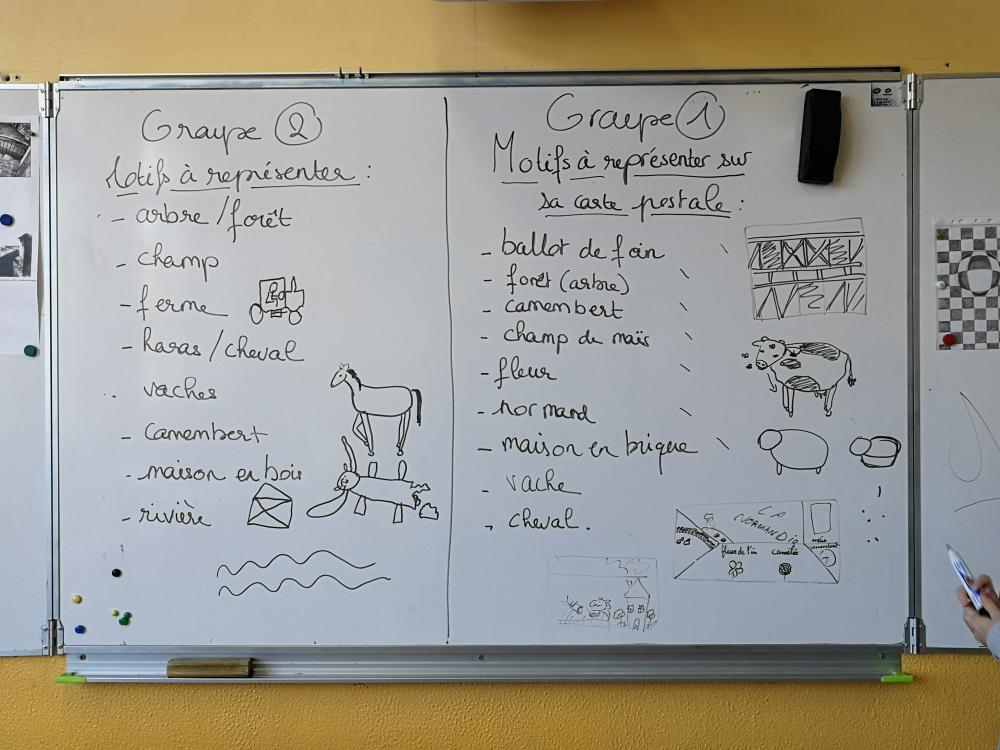 Groupe 2
Motifs à représenter :
- arbre / forêt
- champ
- ferme
- haras / cheval
- vaches
- camembert
- maison en bois
- rivière
Groupe 1
Motifs à représenter sur
sa carte postale :
- ballot de foin
- forêt (arbre)
- camembert
- champ de maïs
- fleur
- normand
- maison en brique
- vache
- cheval.
LA
NORMANDIE
fleur de lin